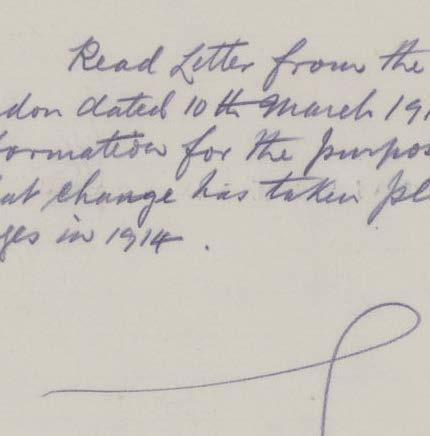 Read Letter from the
don dated 10th March 191
formation for the purpos
at change has taken pl
ges in 1914.